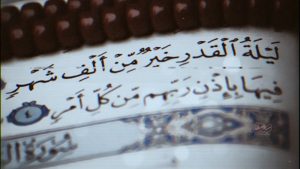 لَيْلَةُ الْقَدْرِ خَيْرٌ مِّنْ أَلْفِ شَهْرٍ
فِيهَا بِإِذْنِ رَبِّهِم مِّن كُلِّ أَمْرٍ ٤
سُورَةُ